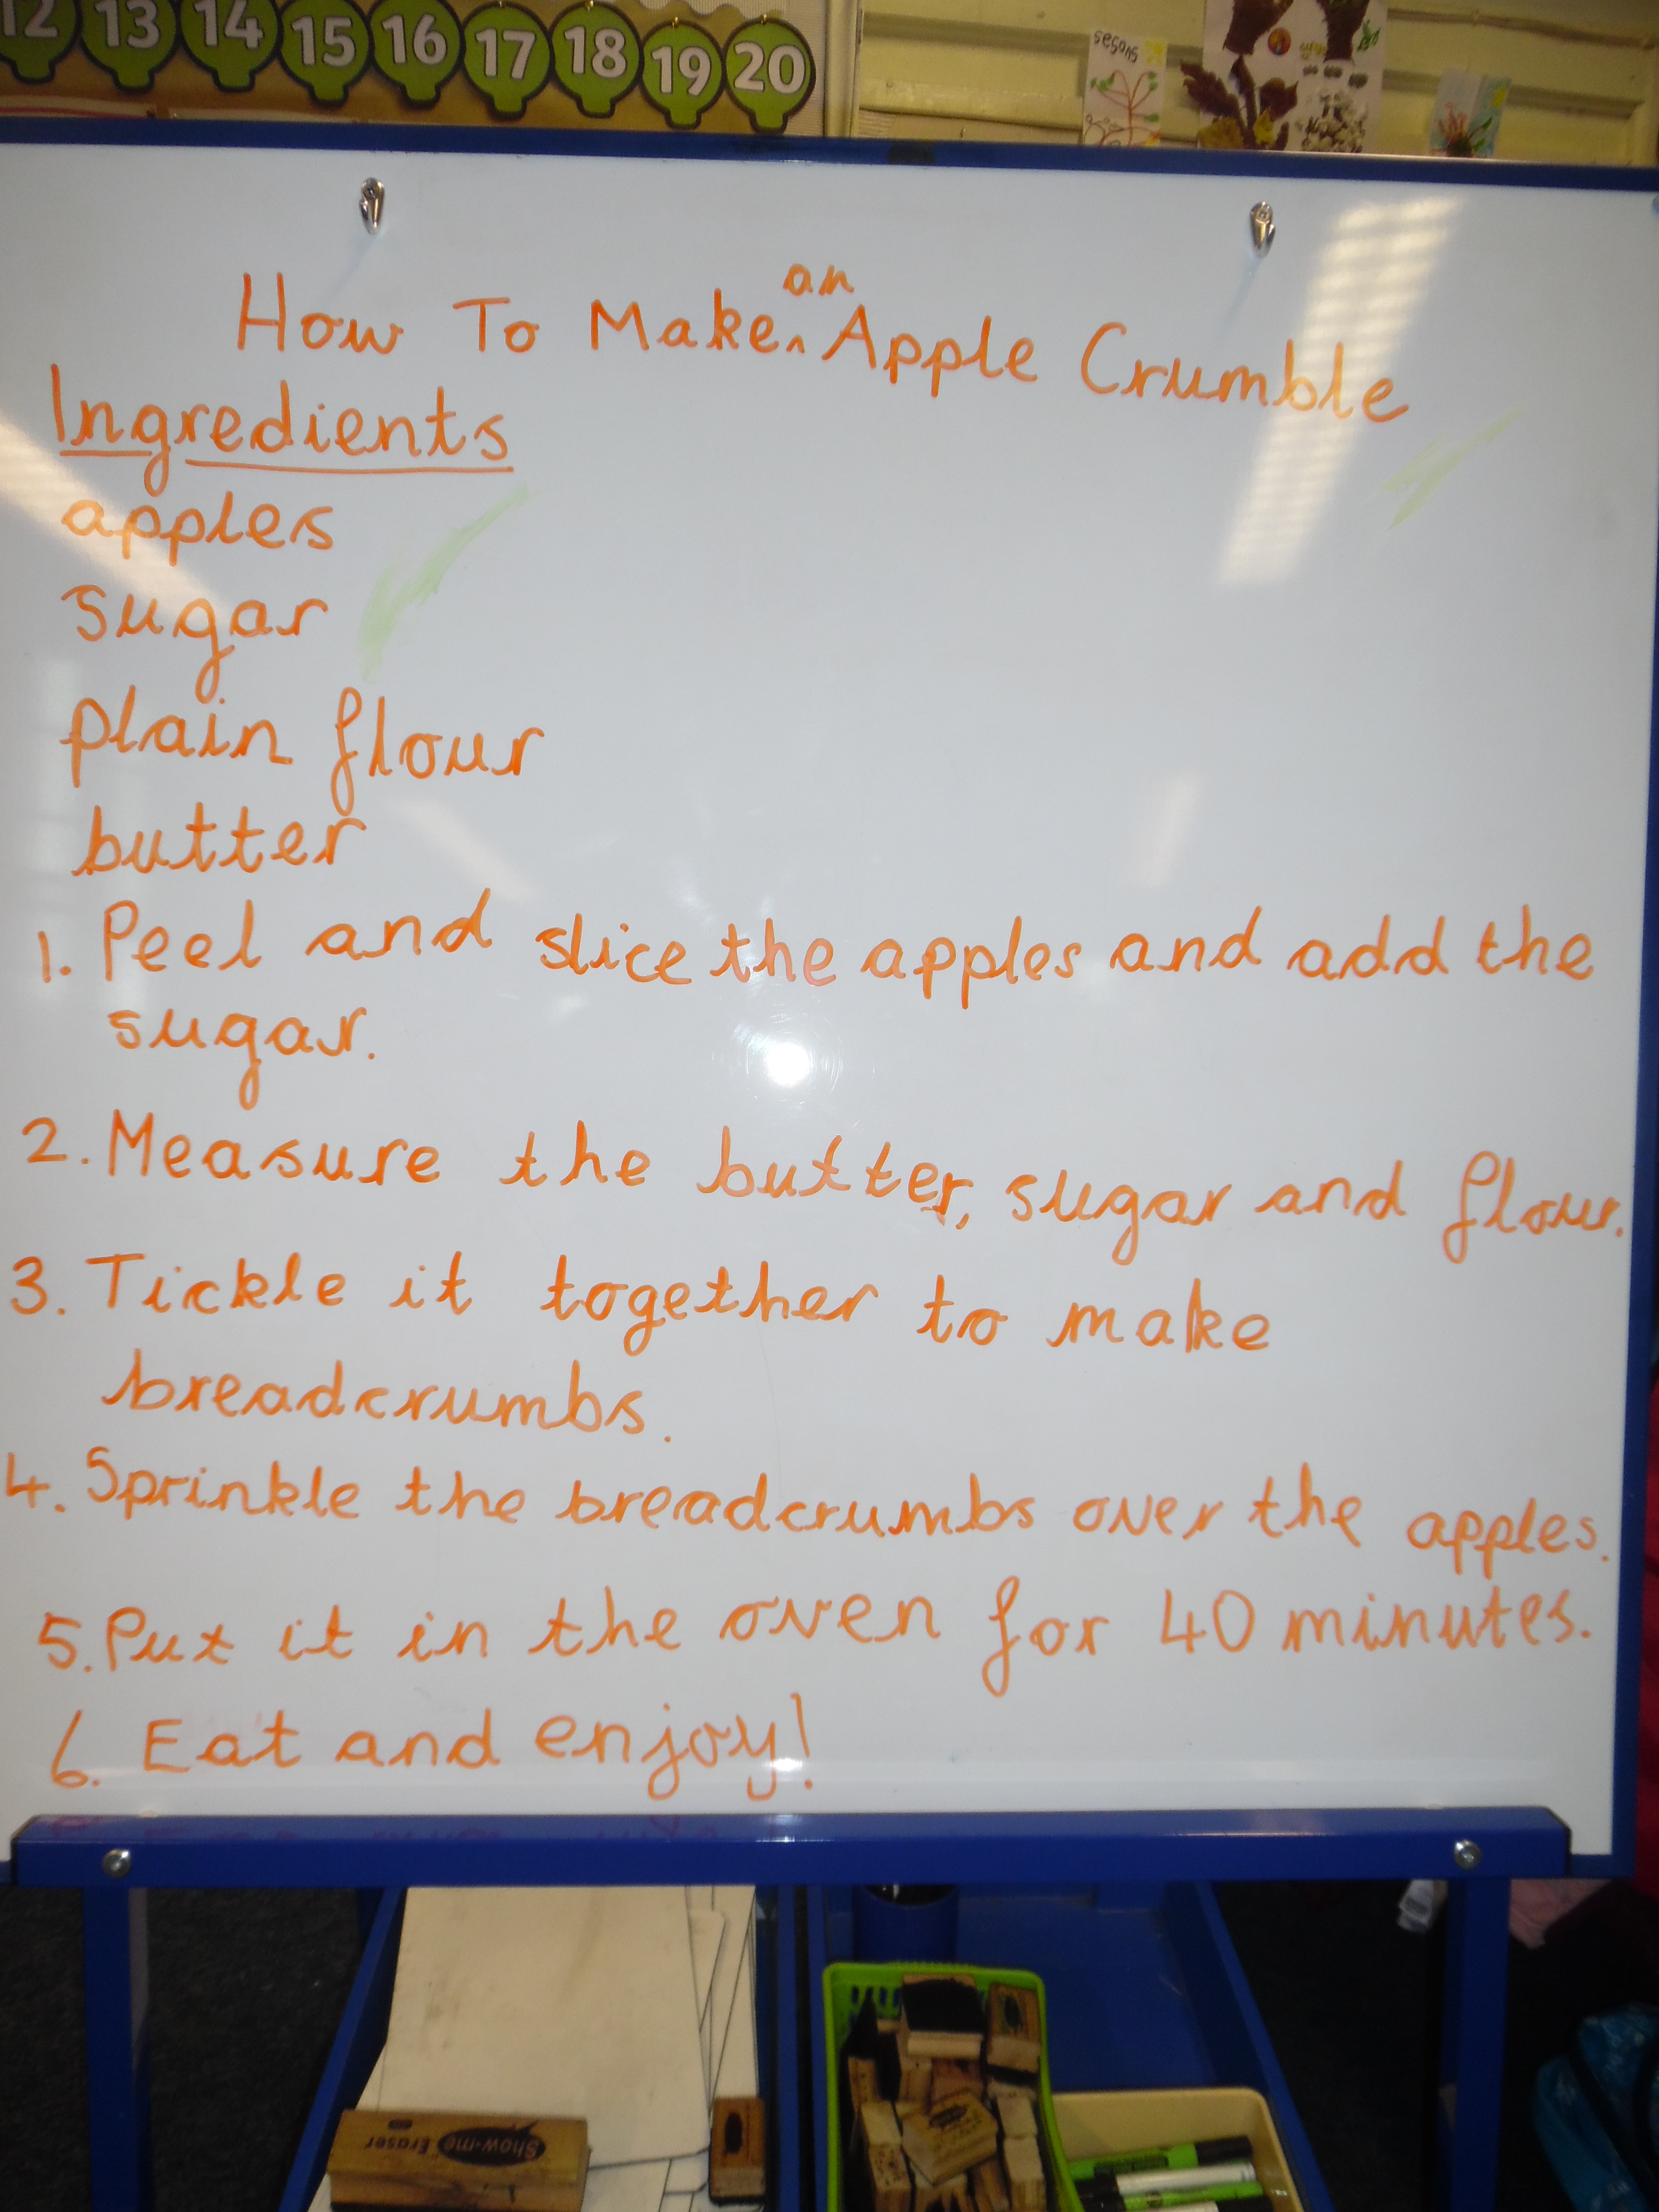 12 13 14 15 16 17 18 19 20
an
How To Make Apple Crumble
Ingredients
apples
sugar
plain flour
butter
1. Peel and slice the apples and add the
sugar.
2. Measure the butter, sugar and flour.
3. Tickle it together to make
breadcrumbs.
4. Sprinkle the breadcrumbs over the apples.
5. Put it in the oven for 40 minutes.
6. Eat and enjoy!
Show-me Eraser